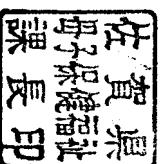 佐賀県
母子保健福祉
課長印